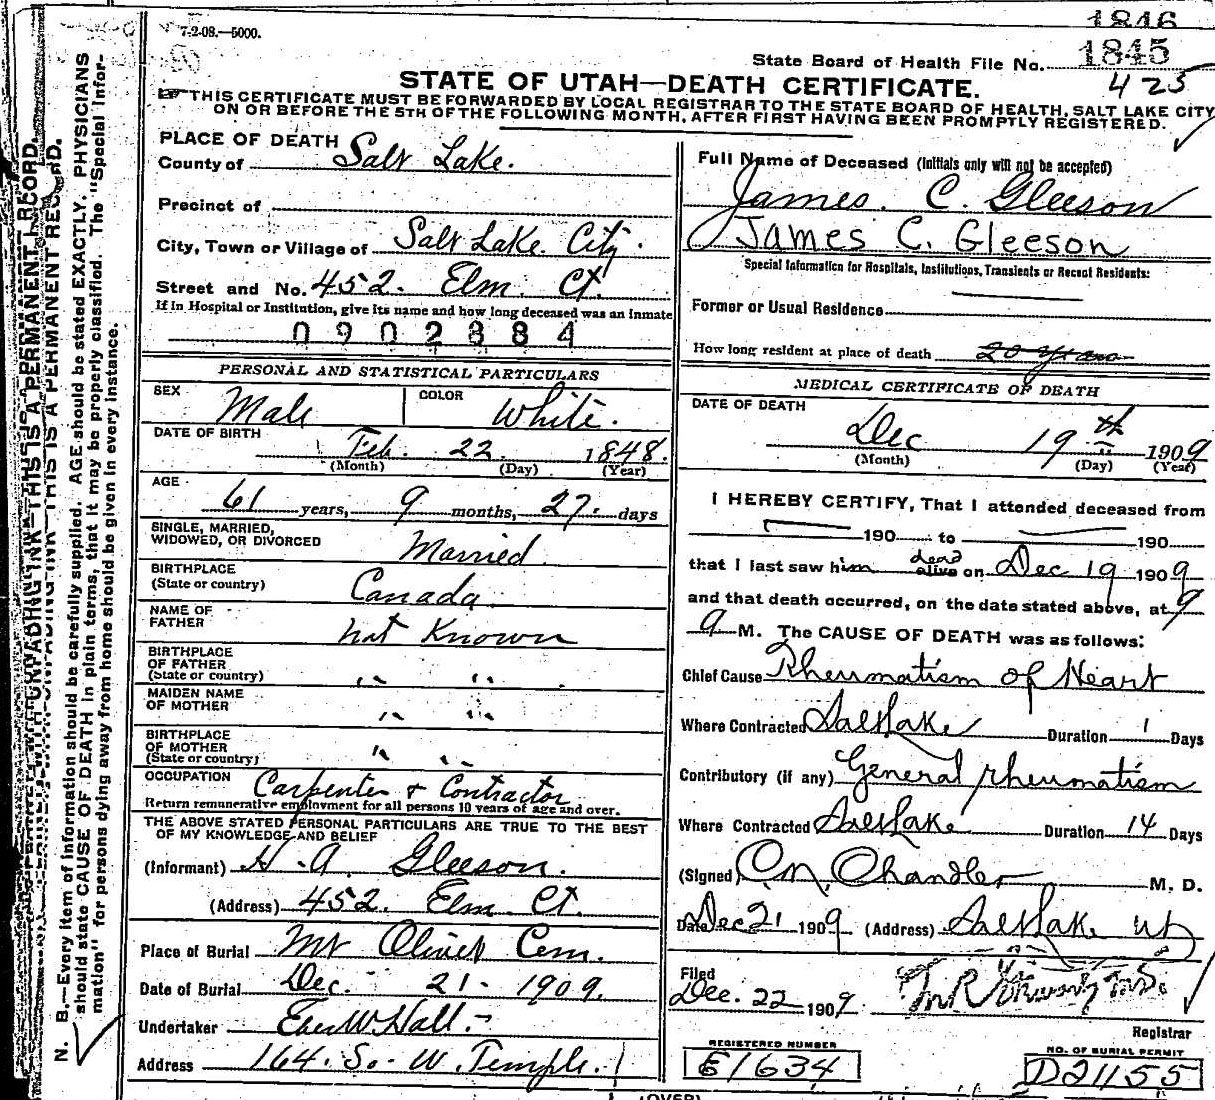 1846
7-2-08.—5000.
State Board of Health File No. 1845
425
STATE OF UTAH—DEATH CERTIFICATE.
THIS CERTIFICATE MUST BE FORWARDED BY LOCAL REGISTRAR TO THE STATE BOARD OF HEALTH, SALT LAKE CITY
ON OR BEFORE THE 5TH OF THE FOLLOWING MONTH, AFTER FIRST HAVING BEEN PROMPTLY REGISTERED.
PLACE OF DEATH
County of Salt Lake.
Precinct of
City, Town or Village of Salt Lake City.
Street and No. 452. Elm. Ct.
If in Hospital or Institution, give its name and how long deceased was an Inmate
0902884
PERSONAL AND STATISTICAL PARTICULARS
SEX Male
COLOR White.
DATE OF BIRTH Feb. 22 1848.
(Month) (Day) (Year)
AGE 61 years, 9 months, 27. days
SINGLE, MARRIED,
WIDOWED, OR DIVORCED Married
BIRTHPLACE
(State or country) Canada
NAME OF
FATHER not Known
BIRTHPLACE
OF FATHER
(State or country) " "
MAIDEN NAME
OF MOTHER " "
BIRTHPLACE
OF MOTHER
(State or country) " "
OCCUPATION Carpenter + Contractor
Return remunerative employment for all persons 10 years of age and over.
THE ABOVE STATED PERSONAL PARTICULARS ARE TRUE TO THE BEST
OF MY KNOWLEDGE AND BELIEF
(Informant) H. A. Gleeson.
(Address) 452. Elm. Ct.
Place of Burial Mt Olivet Cem.
Date of Burial Dec. 21. 1909.
Undertaker Eber W Hall.
Address 164. So. W. Temple.
Full Name of Deceased (Initials only will not be accepted)
James. C. Gleeson
James C. Gleeson
Special Information for Hospitals, Institutions, Transients or Recent Residents:
Former or Usual Residence
How long resident at place of death 20 years
MEDICAL CERTIFICATE OF DEATH
DATE OF DEATH
Dec 19th 1909
(Month) (Day) (Year)
I HEREBY CERTIFY, That I attended deceased from
190 to 190
that I last saw him dead alive on Dec 19 1909
and that death occurred, on the date stated above, at 9
a M. The CAUSE OF DEATH was as follows:
Chief Cause Rheumatism of Heart
Where Contracted Salt Lake Duration 1 Days
Contributory (if any) General rheumatism
Where Contracted Salt Lake Duration 14 Days
(Signed) C. M. Chandler M. D.
Date Dec 21 1909 (Address) Salt Lake Ut
Filed
Dec. 22 1909
Registrar
REGISTERED NUMBER
E1634
NO. OF BURIAL PERMIT
D21155
(OVER)
THIS IS A PERMANENT RECORD.
N. B.—Every item of information should be carefully supplied. AGE should be stated EXACTLY. PHYSICIANS
should state CAUSE OF DEATH in plain terms, that it may be properly classified. The "Special Infor-
mation" for persons dying away from home should be given in every instance.